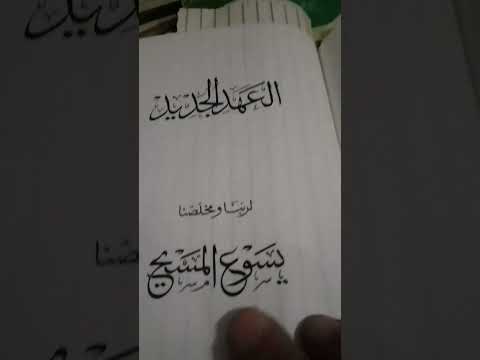 العهد الجديد
لربنا ومخلصنا
يسوع المسيح